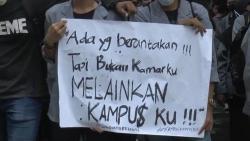 EME
"Ada yg berantakan !!!
Tapi Bukan Kamarku
MELAINKAN
KAMPU$ Ku !!!"